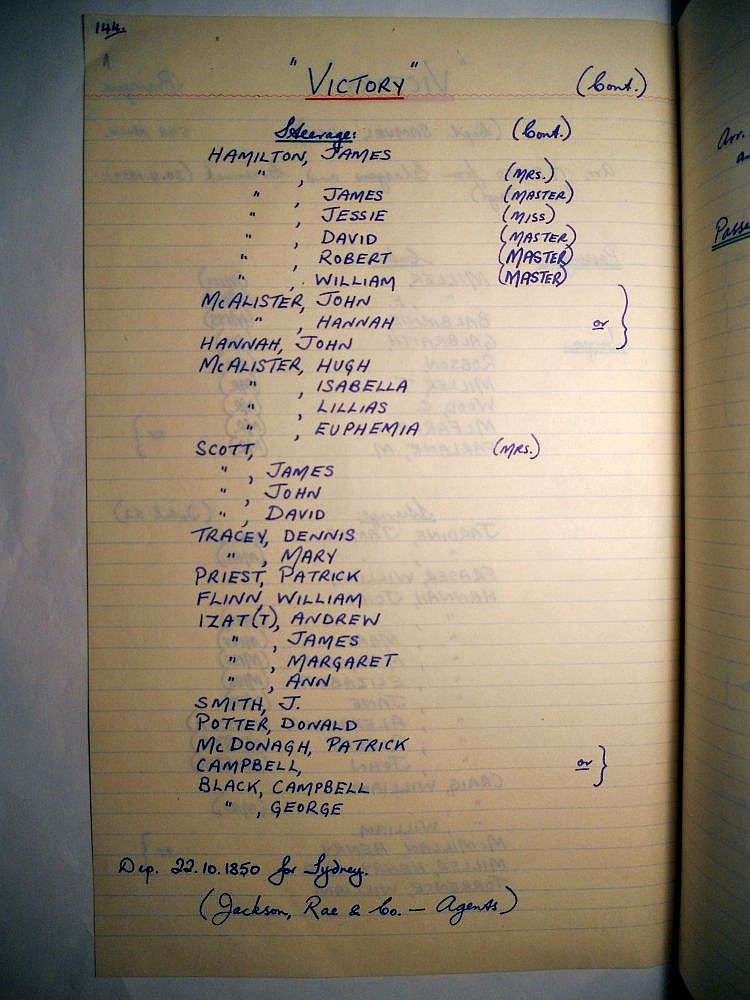 144.
"VICTORY" (Cont.)
Steerage: (Cont.)
HAMILTON, JAMES
" , (MRS.)
" , JAMES (MASTER)
" , JESSIE (MISS)
" , DAVID (MASTER)
" , ROBERT (MASTER)
" , WILLIAM (MASTER)
McALISTER, JOHN
" , HANNAH or }
HANNAH, JOHN
McALISTER, HUGH
" , ISABELLA
" , LILLIAS
" , EUPHEMIA
SCOTT, (MRS.)
" , JAMES
" , JOHN
" , DAVID
TRACEY, DENNIS
" , MARY
PRIEST, PATRICK
FLINN, WILLIAM
IZAT(T), ANDREW
" , JAMES
" , MARGARET
" , ANN
SMITH, J.
POTTER, DONALD
McDONAGH, PATRICK
CAMPBELL, or }
BLACK, CAMPBELL
" , GEORGE
Dep. 22.10.1850 for Sydney.
(Jackson, Rae & Co. — Agents)
Arr.
Passe